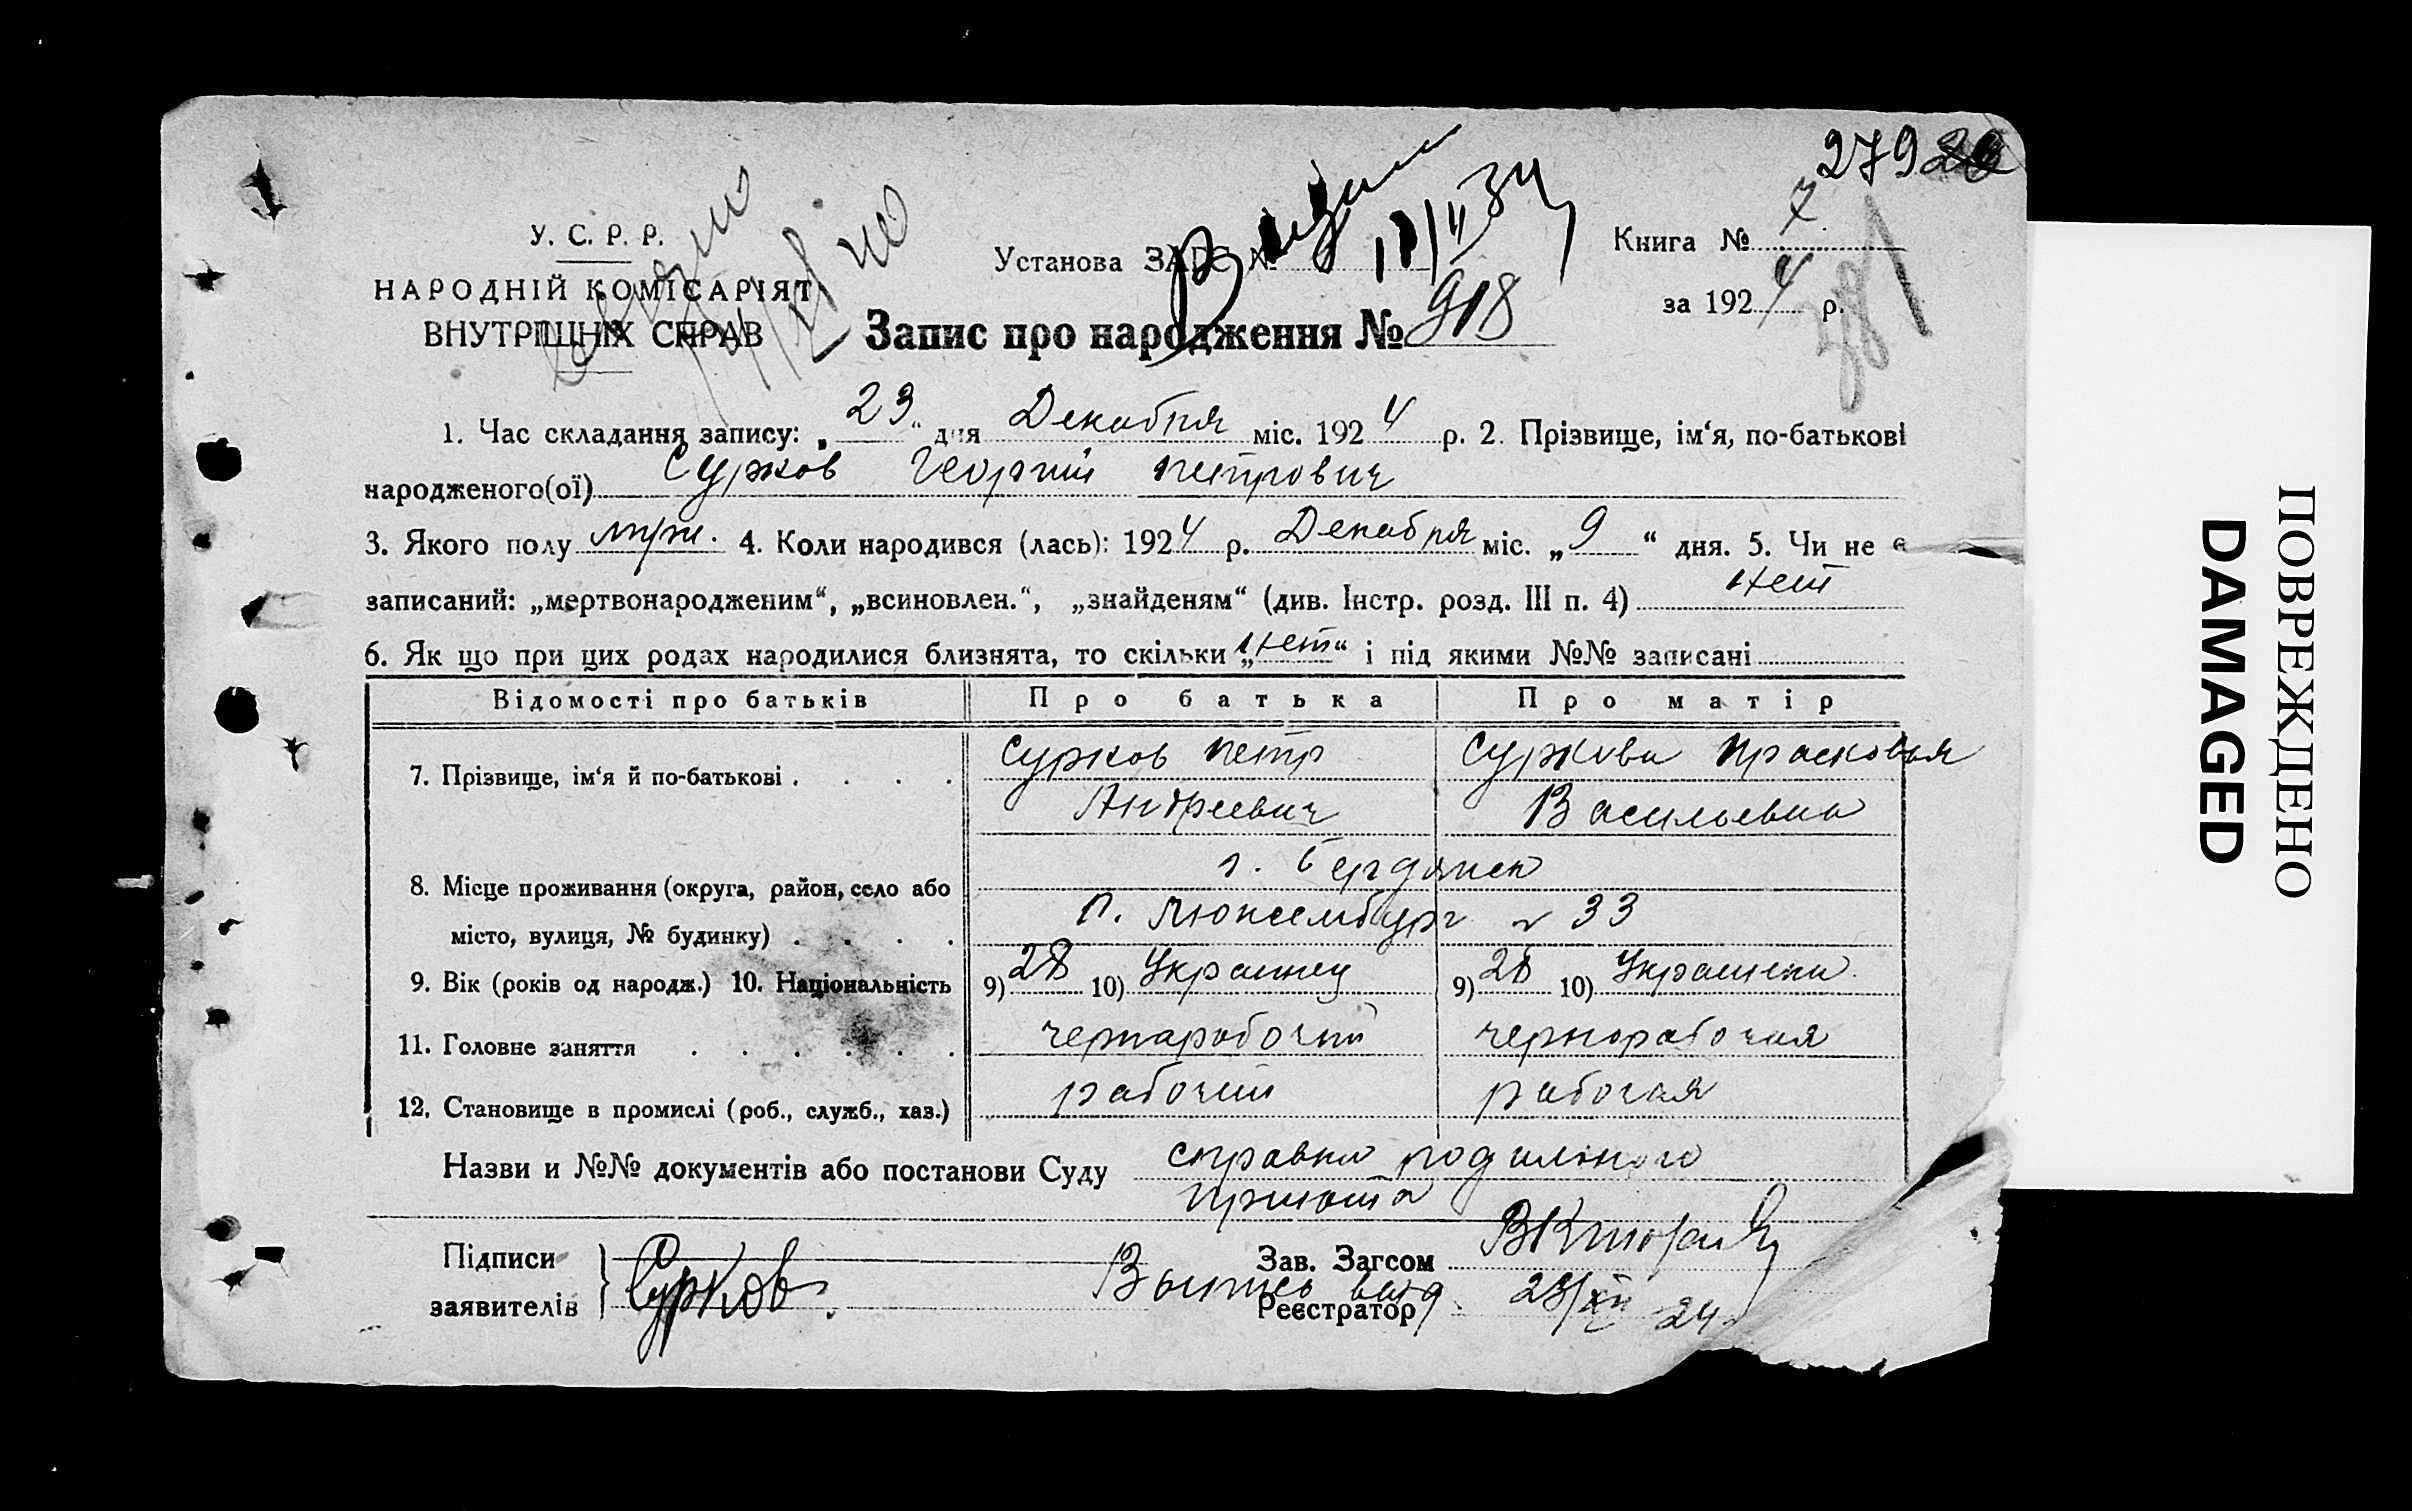 279
У. С. Р. Р.
НАРОДНІЙ КОМІСАРІЯТ
ВНУТРІШНІХ СПРАВ
Установа ЗАГС №
Книга № 7
за 1924 р.
Запис про народження № 918
1. Час складання запису: „23“ дня Декабря міс. 1924 р. 2. Прізвище, ім‘я, по-батькові
народженого(ої) Сурков Георгий Петрович
3. Якого полу муж. 4. Коли народився (лась): 1924 р. Декабря міс. „9“ дня. 5. Чи не є
записаний: „мертвонародженим“, „всиновлен.“, „знайденям“ (див. Інстр. розд. III п. 4) нет
6. Як що при цих родах народилися близнята, то скільки „нет“ і під якими №№ записані
Відомості про батьків Про батька Про матір
7. Прізвище, ім‘я й по-батькові . . . . Сурков Петр Суркова Прасковья
Андреевич Васильевна
8. Місце проживання (округа, район, село або г. Бердянск
місто, вулиця, № будинку) . . . . П. Люксембург № 33
9. Вік (років од народж.) 10. Національність 9) 28 10) Украинец 9) 26 10) Украинка
11. Головне заняття . . . . . . чернарабочий чернорабочая
12. Становище в промислі (роб., служб., хаз.) рабочий рабочая
Назви и №№ документів або постанови Суду справка родильного
приюта
Підписи
заявителів Сурков.
Зав. Загсом
Выпись выд
Реєстратор 23/XII 24
ПОВРЕЖДЕНО
DAMAGED